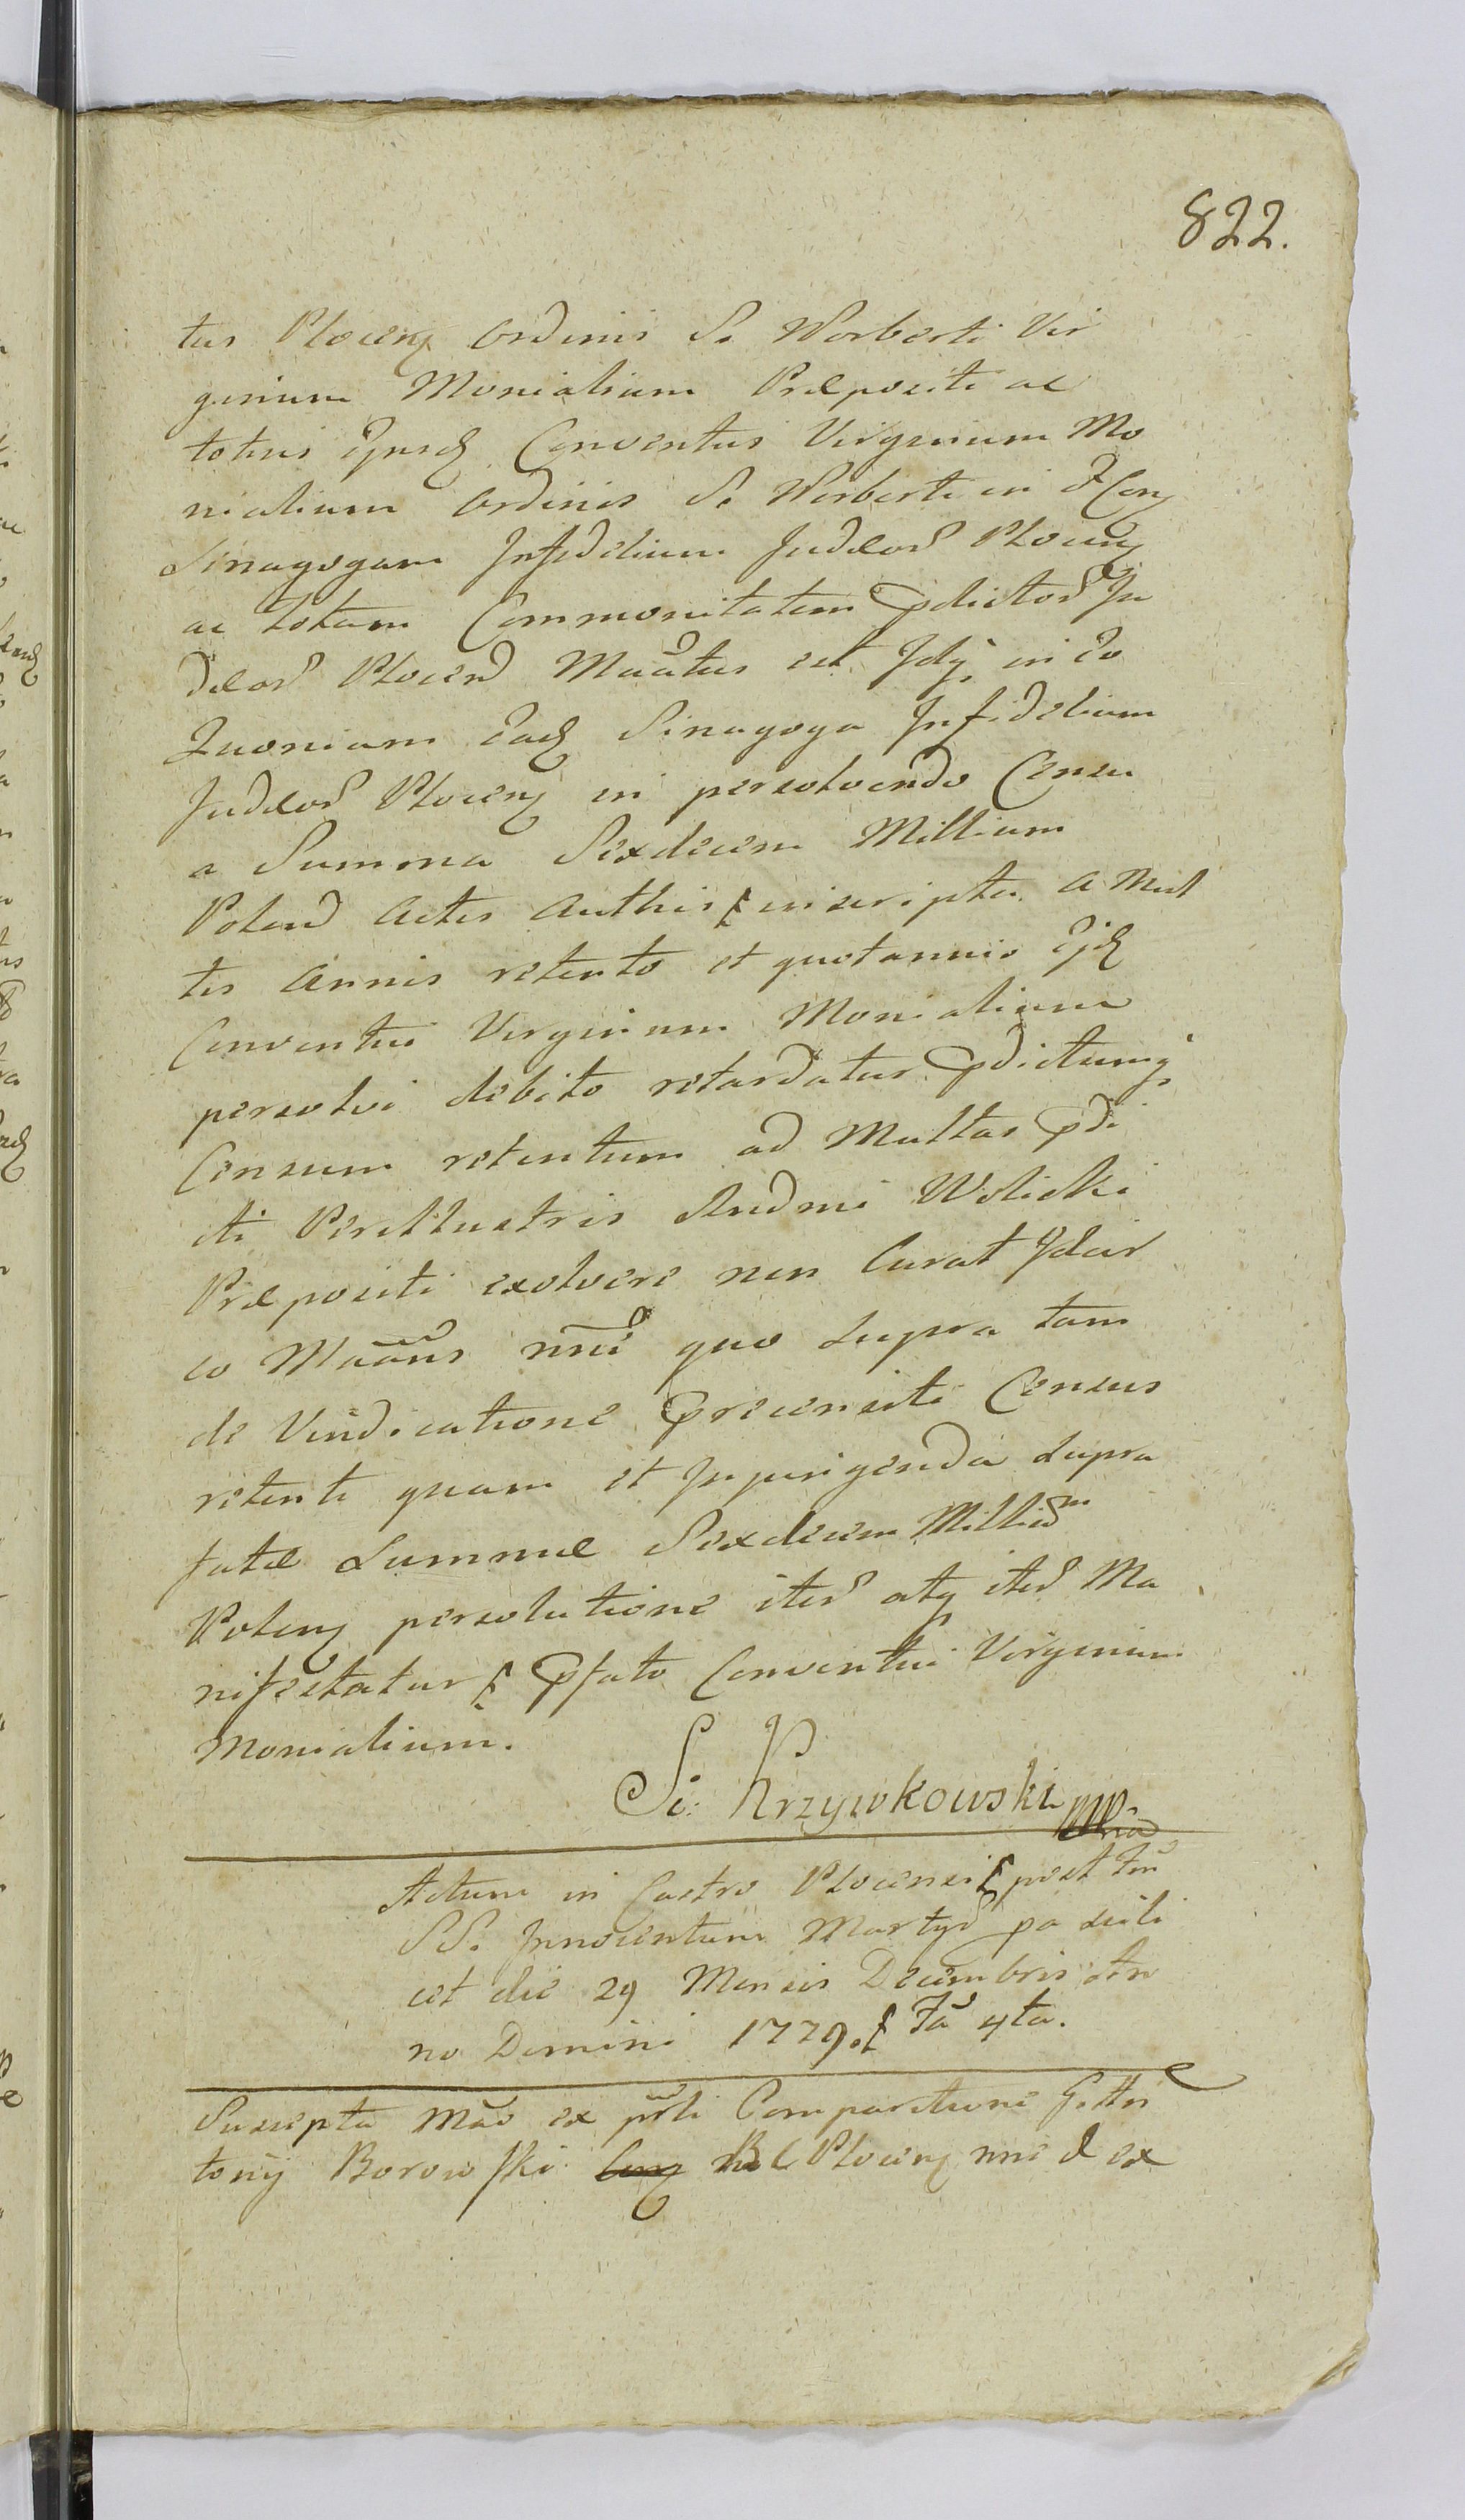 822.
tus Plocens Ordinis S. Norberti Vir
ginum Monialium Præpositi ac
totius ejusd Conventus Virginum Mo
nialium Ordinis S. Norberti in & Con
Sinagogam Infidelium Judæor Plocens
ac totam Commonitatem pdictor Ju
dæor Plocens Man̄tus est Idq in eo
Quoniam Ead Sinagoga Infidelium
Judæor Plocens in persolvendo Censu
a Summa Sexdecem Millium
Polend Actis Authis inscripta a Mul
tis Annis retento et quotannis Ejd
Conventui Virginum Monialium
persolvi debito retardatur pdictumq
Censum retentum ad Multas pdi
cti Perillustris Rndmi Wolicki
Præpositi exolvere non Curat Idcir
co Man̄ns nn̄i quo supra tam
de Vindicatione precensiti Census
retenti quam et Injungenda supra
fatæ Summæ Sexdecem Millium
Polens persolutione iter atq iter Ma
nifestatur pfato Conventui Virginum
Monialium.
S. Krzywkowski mp
Actum in Castro Plocensi post Fm̄
SS. Innocentum Martyr pa scili
cet die 29 Mensis Decembris An
no Domini 1779. Fā 4ta.
Suscepta Mā̄o ex pn̄li Comparitione G. An
tonij Borowski Plocens nn̄e & ex